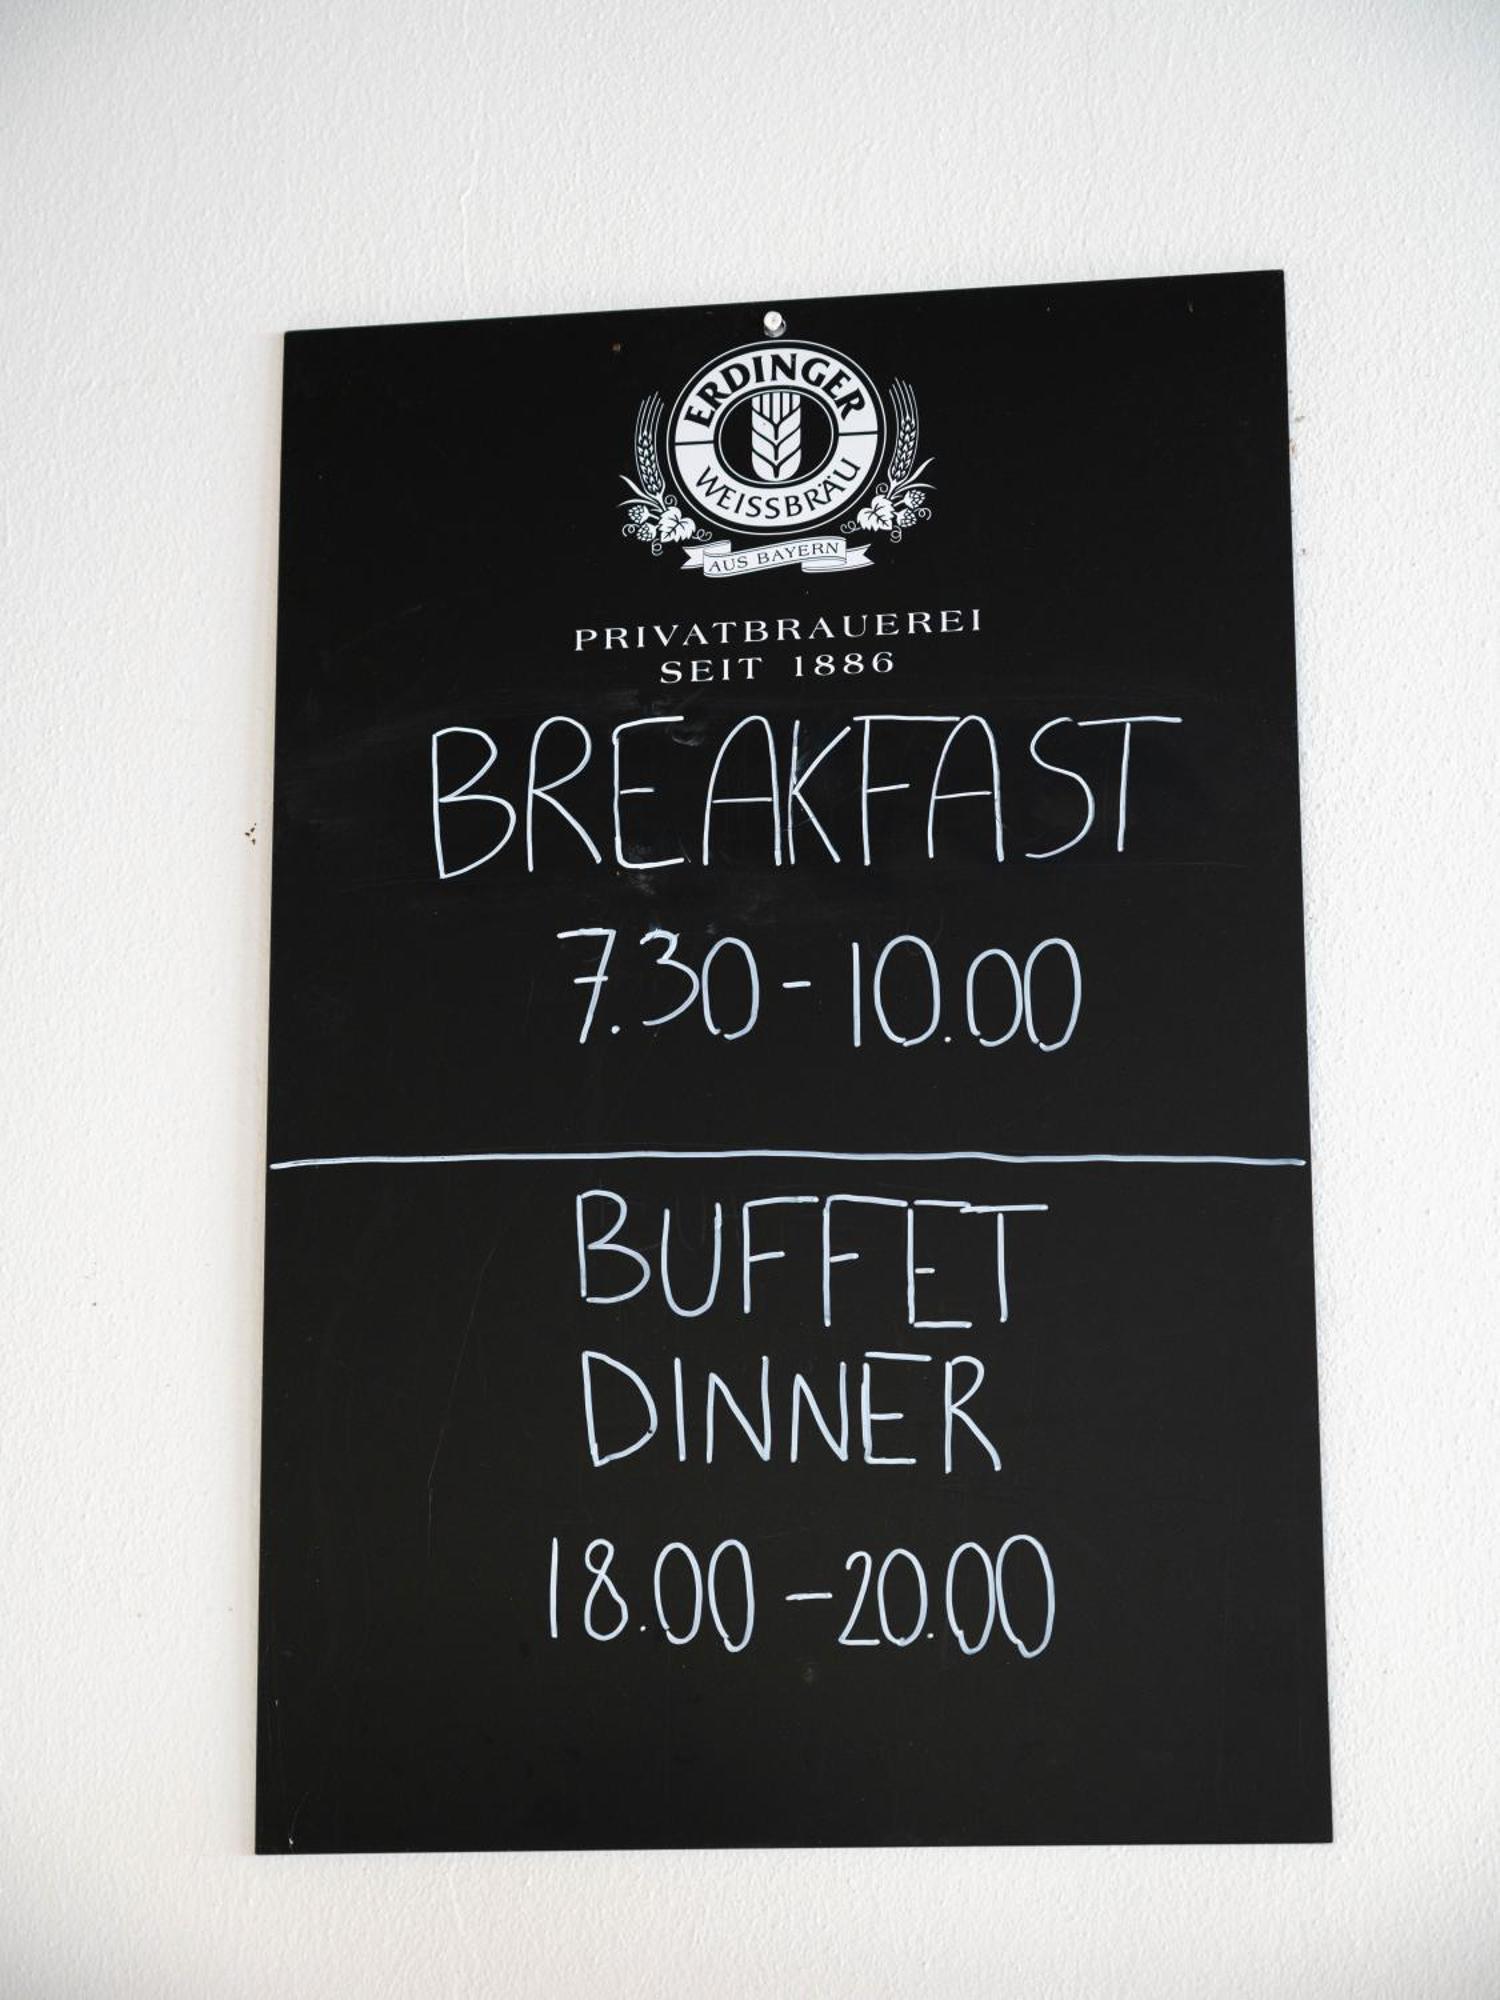 ERDINGER
WEISSBRÄU
AUS BAYERN
PRIVATBRAUEREI
SEIT 1886
BREAKFAST
7.30 - 10.00
BUFFET
DINNER
18.00 - 20.00